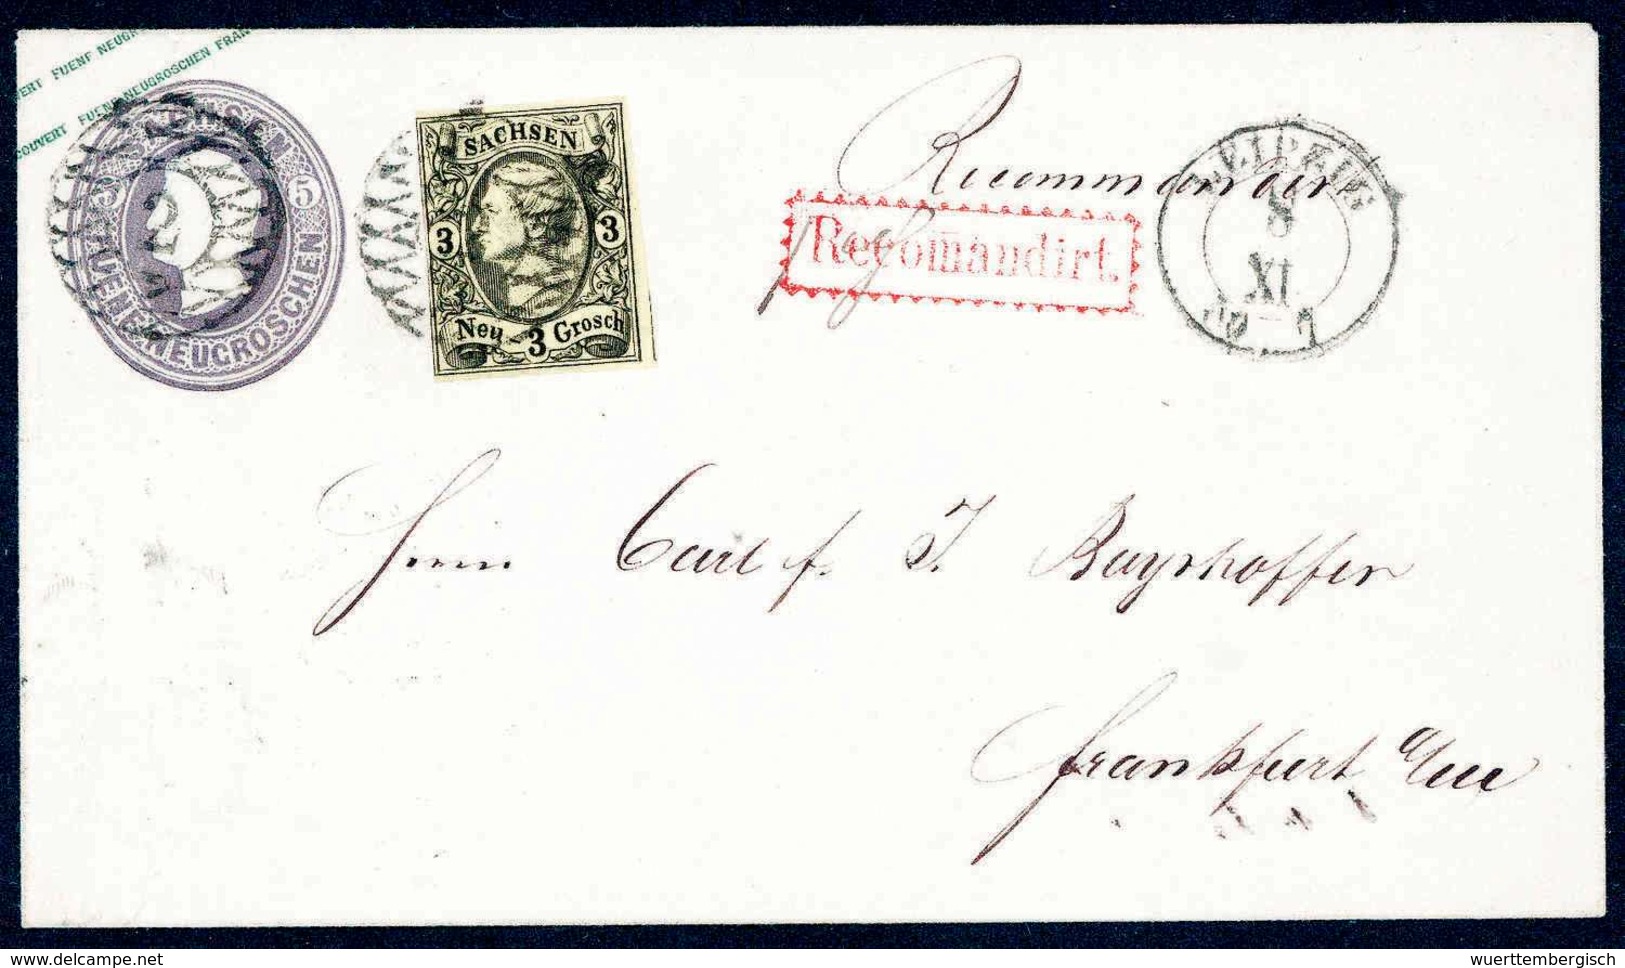 VERT FUENF NEUGR
COUVERT FUENF NEUGROSCHEN FRAN
SACHSEN
5 5
FUENF NEUGROSCHEN
2
SACHSEN
3 3
Neu 3 Grosch
Recommandirt
Recomandirt.
LEIPZIG
8
XI
Herrn Carl f. J. Bayrhoffer
Frankfurt a/m
www.delcampe.net
wuerttembergisch